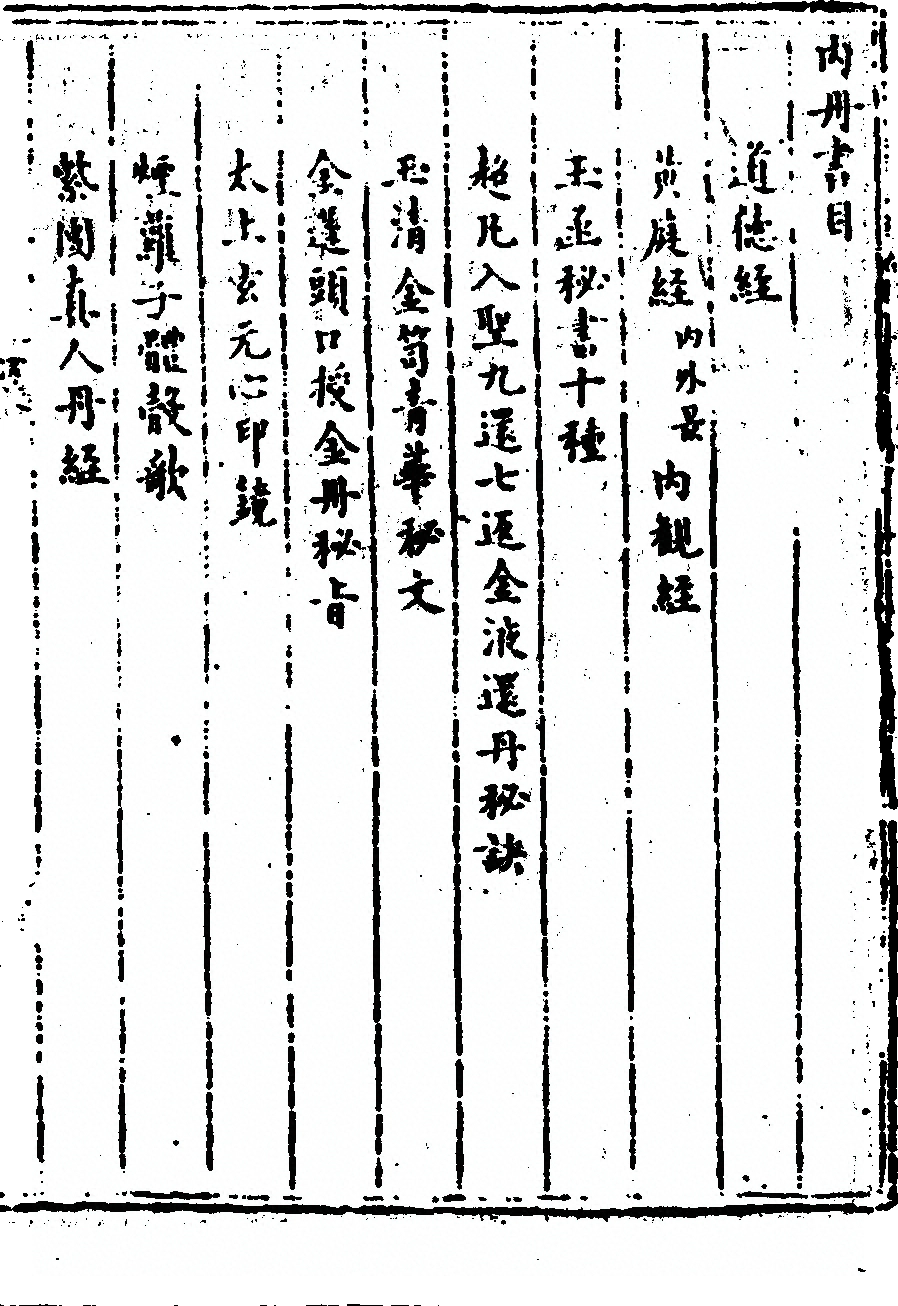 内丹書目
道德經
黃庭經 内外景 内觀經
玉函秘書十種
超凡入聖九還七返金液還丹秘訣
玉清金笥青華秘文
金蓬頭口授金丹秘旨
太上玄元心印鏡
煙蘿子體殼歌
紫團真人丹經